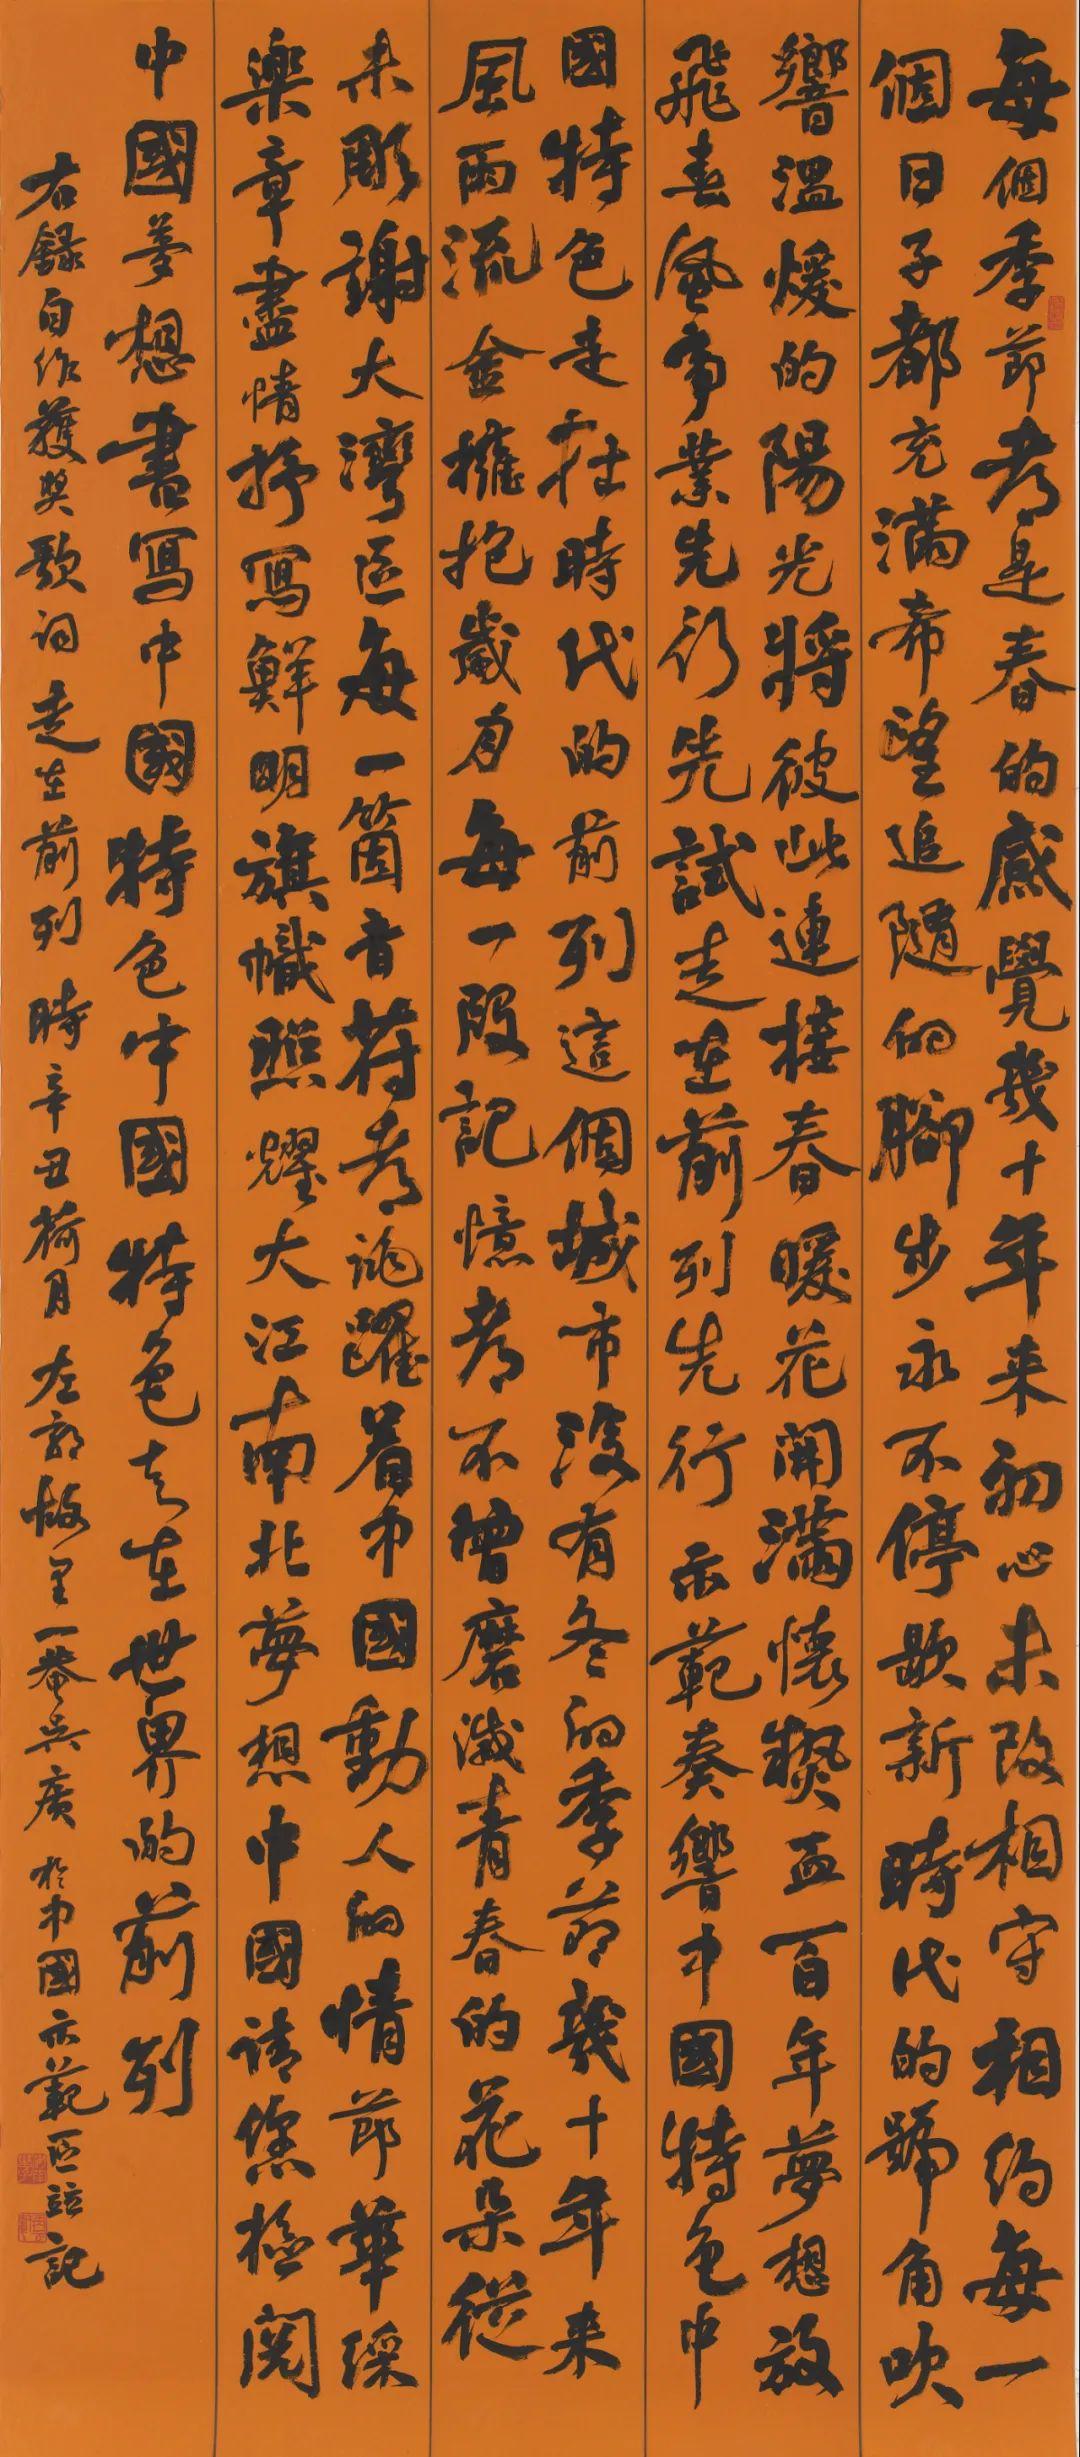 每個季節都是春的感覺幾十年来初心未改相守相約每一
個日子都充滿希望追隨的腳步永不停歇新時代的號角吹
響溫煖的陽光將彼此連接春暖花開滿懷熱血百年夢想放
飛春風事業先行先試走在前列先行示範奏響中國特色中
國特色走在時代的前列這個城市沒有冬的季節幾十年来
風雨流金擁抱歲月每一段記憶都不曾磨滅青春的花朵從
未彫謝大灣區每一箇音符都跳躍着中國動人的情節華綵
樂章盡情抒寫鮮明旗幟照耀大江南北夢想中國請您檢閱
中國夢想書寫中國特色中國特色走在世界的前列
右録自作獲奬歌詞走在前列時辛丑荷月左故里一菴吳廣於中國示範區竝記